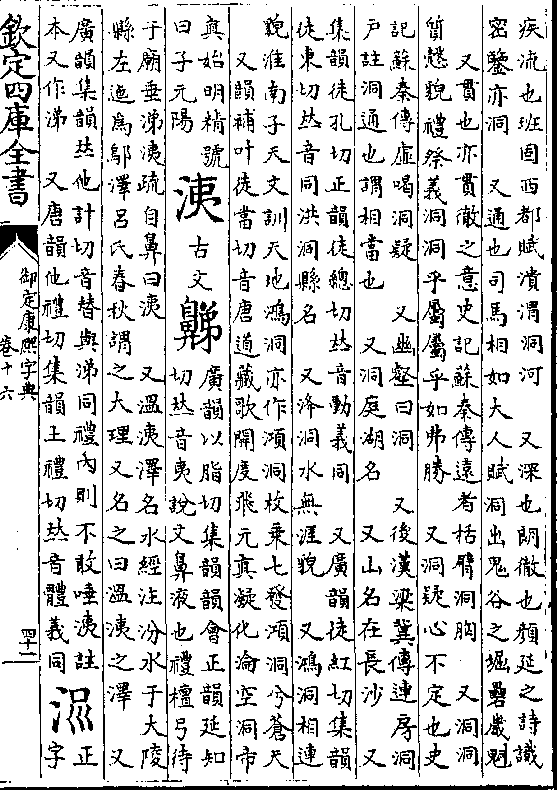 疾流也班固西都賦潰渭洞河　又深也朗徹也顏延之詩識
密鑒亦洞　又通也司馬相如大人賦洞出鬼谷之堀礨崴魁
又貫也亦貫徹之意史記蘇秦傳遠者括臂洞胸　又洞洞
質愨貌禮祭義洞洞乎屬屬乎如弗勝　又洞疑心不定也史
記蘇秦傳虛喝洞疑　又幽壑曰洞　又後漢梁冀傳連房洞
戸註洞通也謂相當也　又洞庭湖名　又山名在長沙　又
集韻徒孔切正韻徒總切𠀤音動義同　又廣韻徒紅切集韻
徒東切𠀤音同洪洞縣名　又洚洞水無涯貌　又鴻洞相連
貌淮南子天文訓天地鴻洞亦作澒洞枚乗七發澒洞兮蒼天
又韻補叶徒當切音唐道藏歌開度飛元真凝化淪空洞帝
真始明精號曰子元陽
洟
古文𪖦
廣韻以脂切集韻韻會正韻延知切𠀤音夷說文鼻液也禮檀弓待
于廟垂涕洟疏自鼻曰洟　又溫洟澤名水經注汾水于大陵
縣左迤爲鄔澤呂氏春秋謂之大理又名之曰溫洟之澤　又
廣韻集韻𠀤他計切音替與涕同禮內則不敢唾洟註
本又作涕　又唐韻他禮切集韻土禮切𠀤音體義同
㳂
正字
欽定四庫全書
御定康熙字典
卷十六
四十一